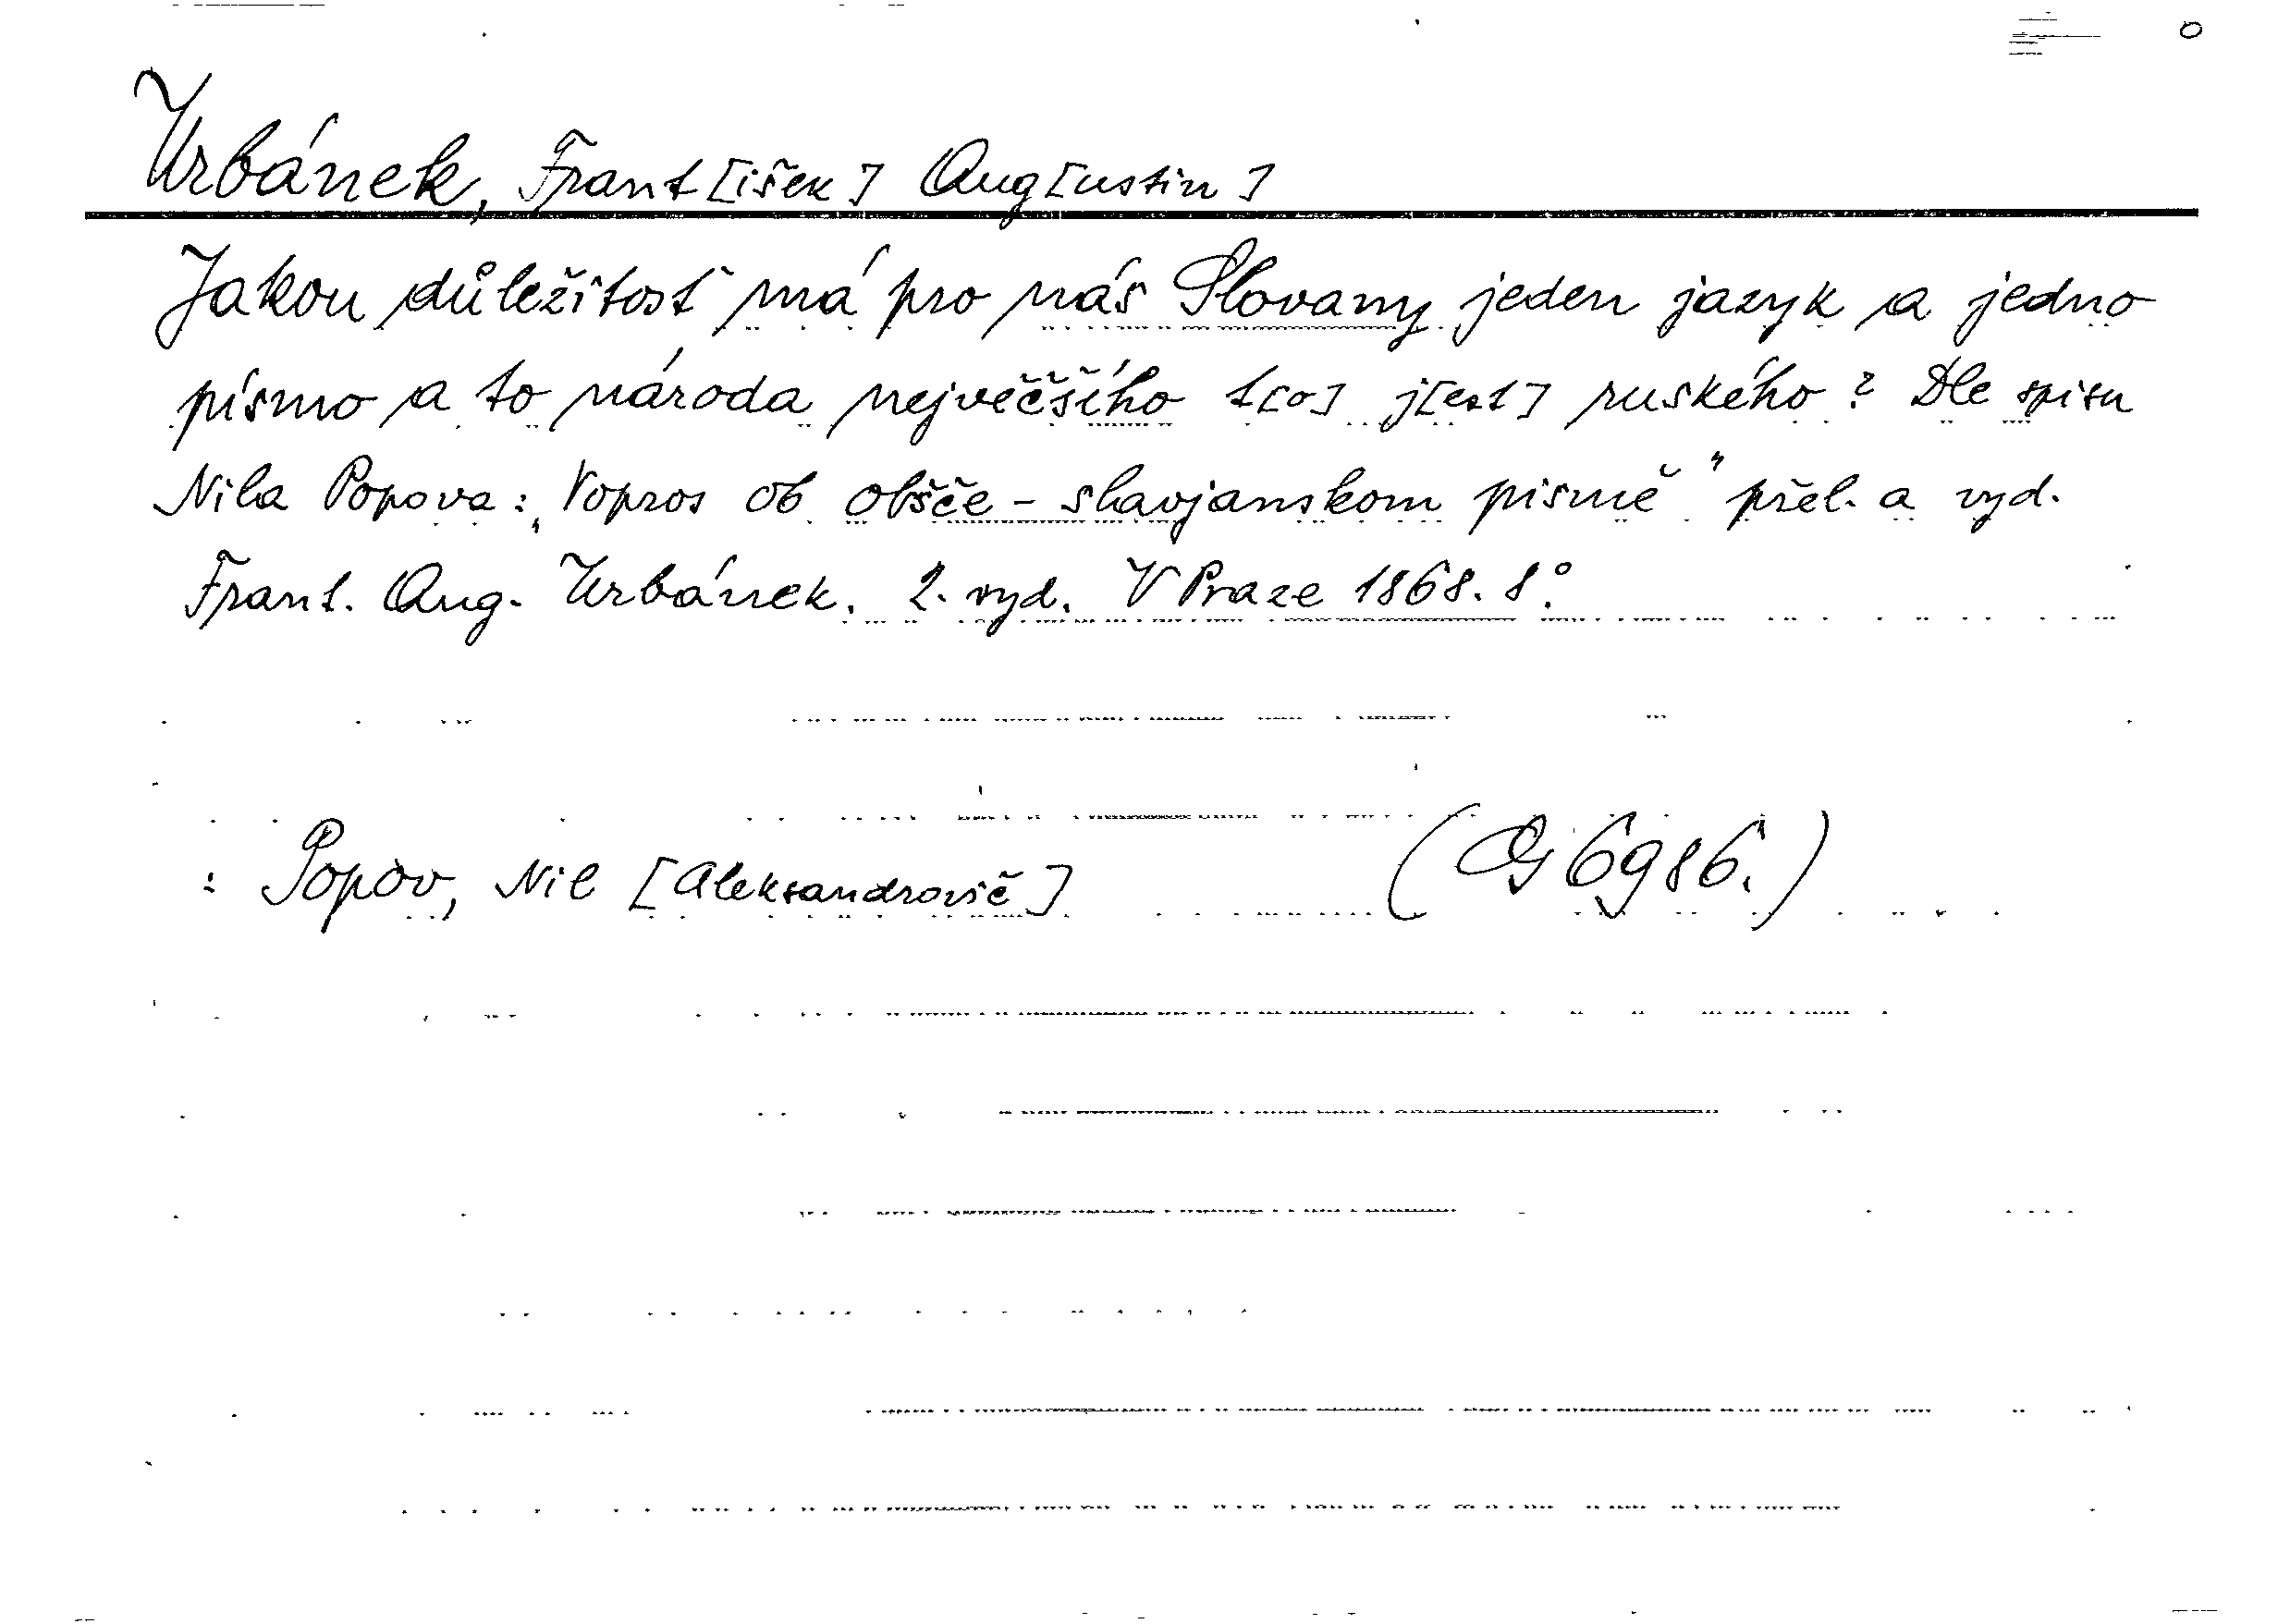 Urbánek, Frant[išek] Aug[ustin]
Jakou důležitosť má pro nás Slovany jeden jazyk a jedno
písmo a to národa největčšího t[o] j[est] ruského? Dle spisu
Nila Popova: „Vopros ob obšče-slavjanskom pismě" přel. a vyd.
Frant. Aug. Urbánek. 2. vyd. V Praze 1868. 8°.
: Popov, Nil [Aleksandrovič]
6986.)